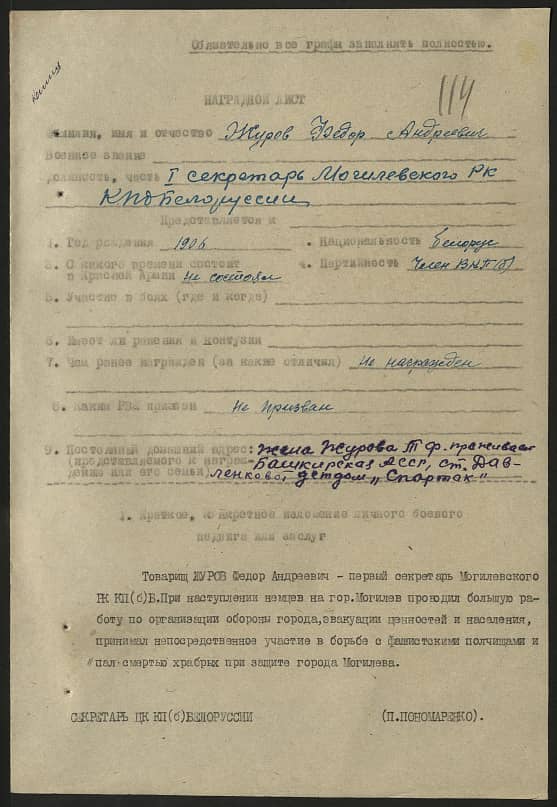 Обязательно все графы заполнять полностью.
114
НАГРАДНОЙ ЛИСТ
Фамилия, имя и отчество Журов Федор Андреевич
Военное звание
Должность, часть I секретарь Могилевского РК
КП(б) Белоруссии
Представляется к
1. Год рождения 1906 2. Национальность белорус
3. С какого времени состоит 4. Партийность Член ВКП(б)
в Красной Армии не состоял
5. Участие в боях (где и когда)
6. Имеет ли ранения и контузии
7. Чем ранее награжден (за какие отличия) не награжден
8. Каким РВК призван не призван
9. Постоянный домашний адрес: жена Журова Т Ф. проживает
(представляемого к награждению или его семьи) Башкирская АССР, ст. Давленково, детдом „Спартак"
1. Краткое, конкретное изложение личного боевого
подвига или заслуг
Товарищ ЖУРОВ Федор Андреевич - первый секретарь Могилевского
РК КП(б)Б.При наступлении немцев на гор.Могилев проводил большую ра-
боту по организации обороны города,эвакуации ценностей и населения,
принимал непосредственное участие в борьбе с фашистскими полчищами и
пал смертью храбрых при защите города Могилева.
СЕКРЕТАРЬ ЦК КП(б)БЕЛОРУССИИ (П.ПОНОМАРЕНКО).